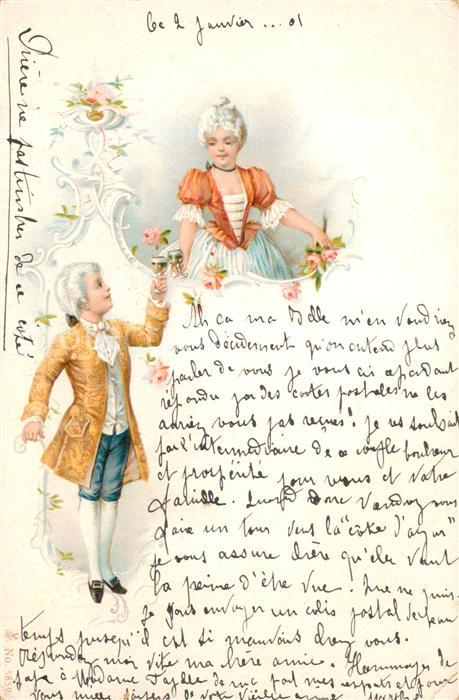 Ce 2 Janvier ... 01
Prière ne pas timbrer de ce coté
Ah ca ma Belle m'en voudriez
vous décidement qu'on entend plus
parler de vous je vous ai cependant
répondu par des cartes postales ne les
auriez vous pas reçues! je vs souhaite
par l'intermédiaire de ce couple bonheur
et prospérité pour vous et votre
famille. Quand donc viendrez vous
faire un tour vers la "côte d'azur"
je vous assure chère qu'elle vaut
la peine d'être vue. Que ne puis-
je vous envoyer un colis postal de beau
temps puisqu'il est si mauvais chez vous.
Répondez moi vite ma chère amie. Hommages de
papa à Madame mes respects et pour
vous mille baisers de votre vieille amie
No. 5859